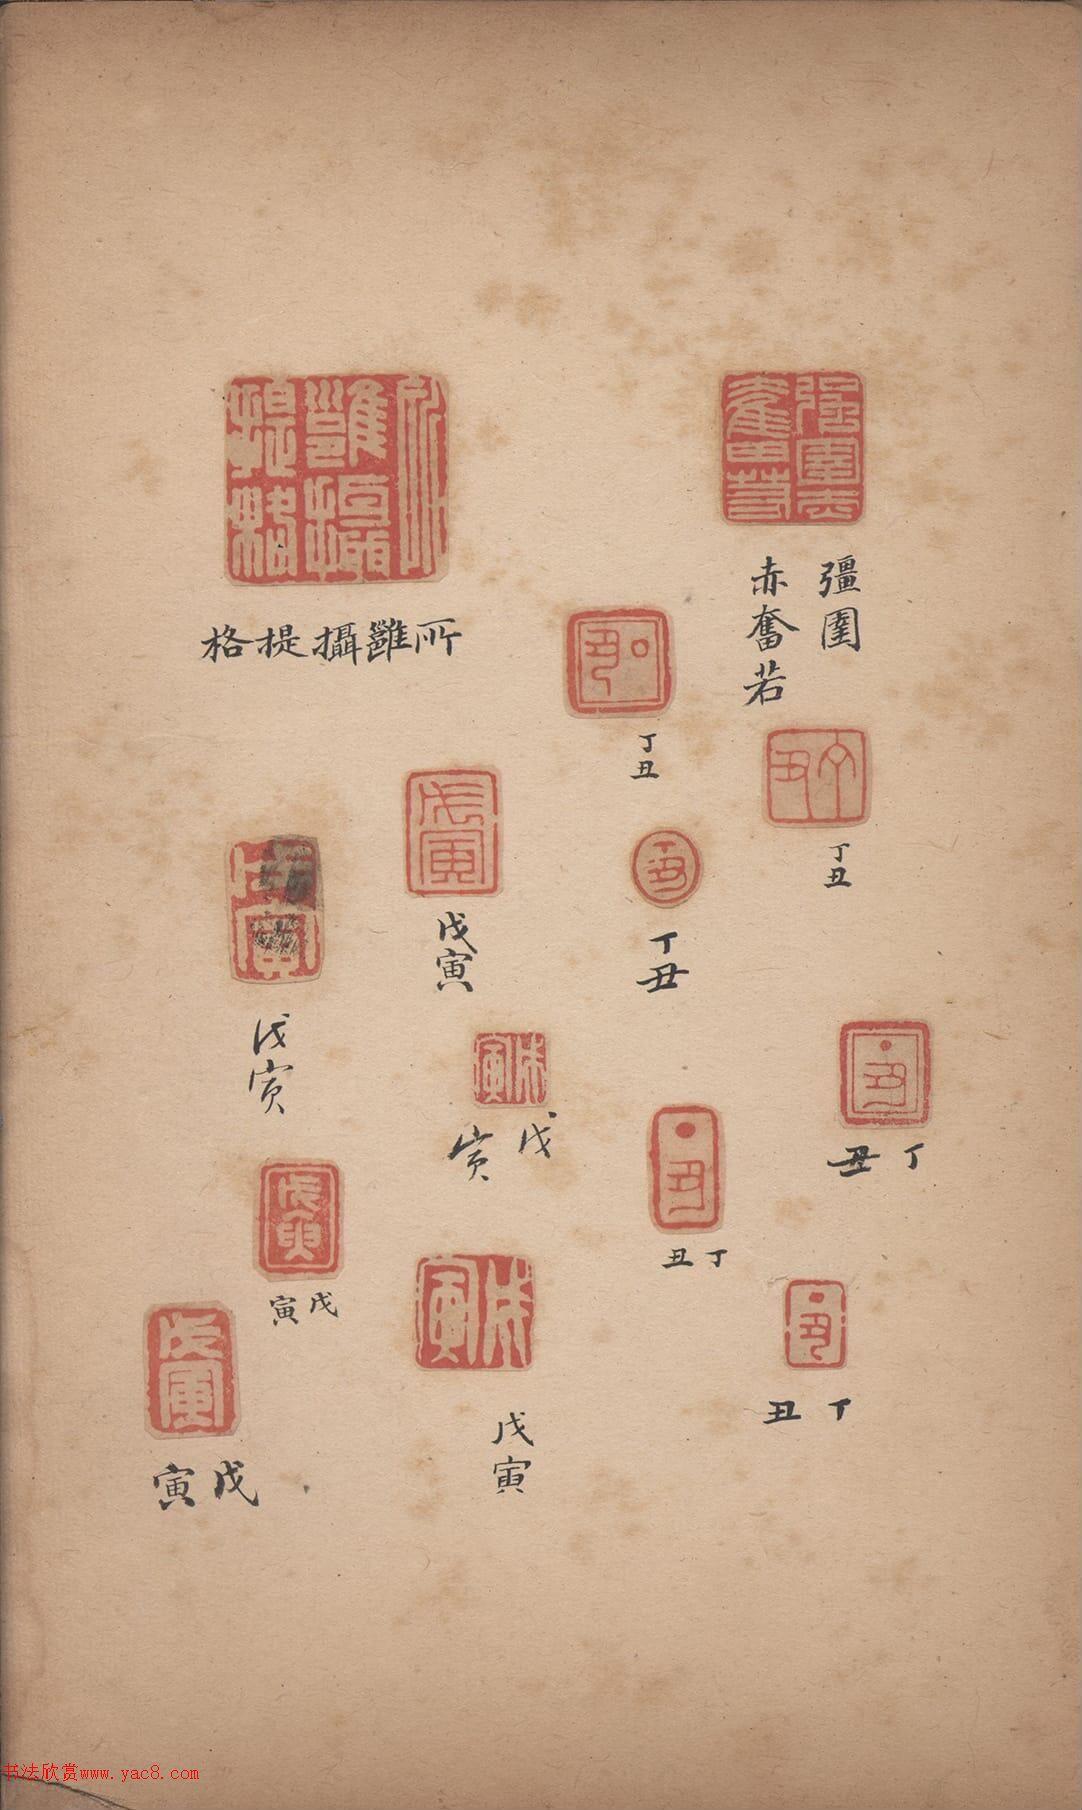 彊圉
赤奮若
丁丑
丁丑
丁丑
丁丑
丁丑
丁丑
所雝攝提格
戊寅
戊寅
戊寅
戊寅
戊寅
戊寅
书法欣赏www.yac8.com